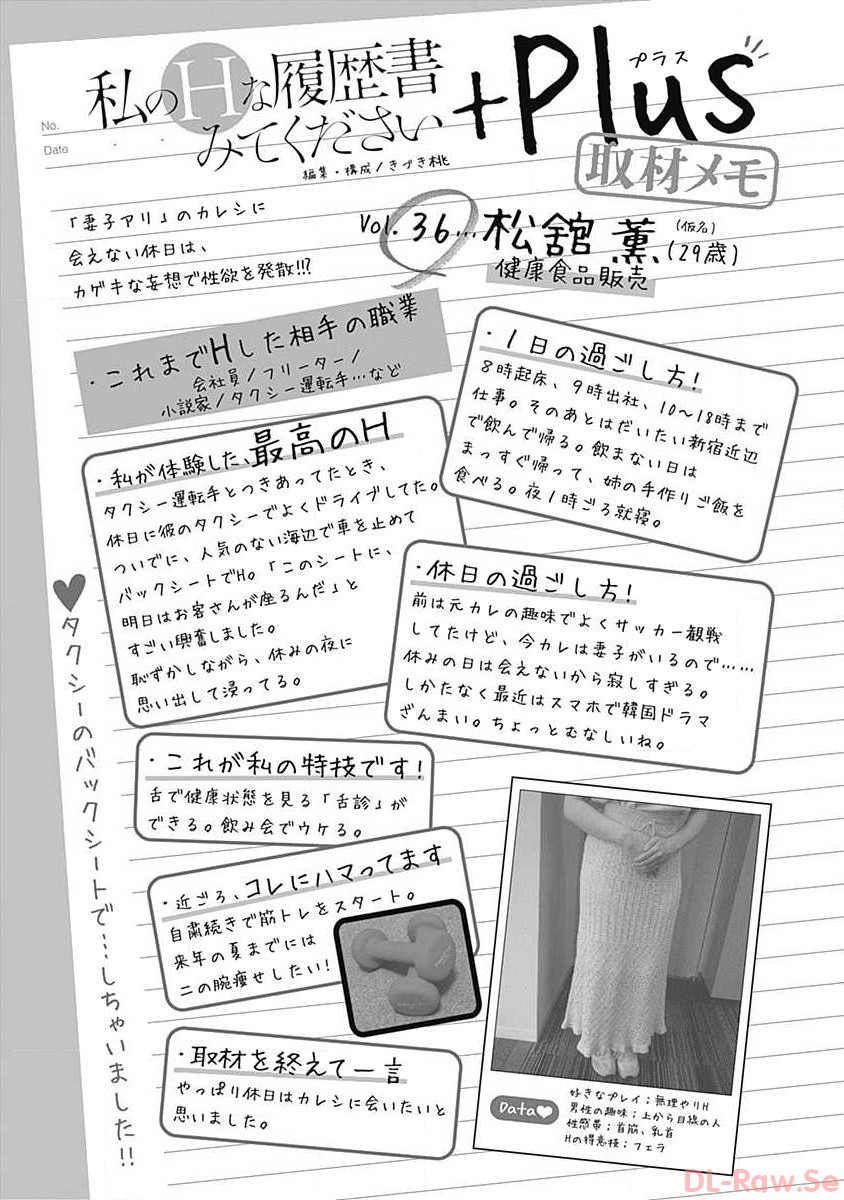 No.
Date
私のHな履歴書
みてください
+Plus
プラス
編集・構成/きづき桃
取材メモ
「妻子アリ」のカレシに
会えない休日は、
カゲキな妄想で性欲を発散!!?
Vol.36…松舘 薫(仮名)(29歳)
健康食品販売
・これまでHした相手の職業
会社員/フリーター/
小説家/タクシー運転手…など
・1日の過ごし方!
8時起床、9時出社、10〜18時まで
仕事。そのあとはだいたい新宿近辺
で飲んで帰る。飲まない日は
まっすぐ帰って、姉の手作りご飯を
食べる。夜1時ごろ就寝。
・私が体験した、最高のH
タクシー運転手とつきあってたとき、
休日に彼のタクシーでよくドライブしてた。
ついでに、人気のない海辺で車を止めて
バックシートでH。「このシートに、
明日はお客さんが座るんだ」と
すごい興奮しました。
恥ずかしながら、休みの夜に
思い出して浸ってる。
・休日の過ごし方!
前は元カレの趣味でよくサッカー観戦
してたけど、今カレは妻子がいるので……
休みの日は会えないから寂しすぎる。
しかたなく最近はスマホで韓国ドラマ
ざんまい。ちょっとむなしいね。
♥タクシーのバックシートで…しちゃいました!!
・これが私の特技です!
舌で健康状態を見る「舌診」が
できる。飲み会でウケる。
・近ごろ、コレにハマってます
自粛続きで筋トレをスタート。
来年の夏までには
二の腕痩せしたい!
・取材を終えて一言
やっぱり休日はカレシに会いたいと
思いました。
Data♥
好きなプレイ;無理やりH
男性の趣味;上から目線の人
性感帯;首筋、乳首
Hの得意技;フェラ
DL-Raw.Se